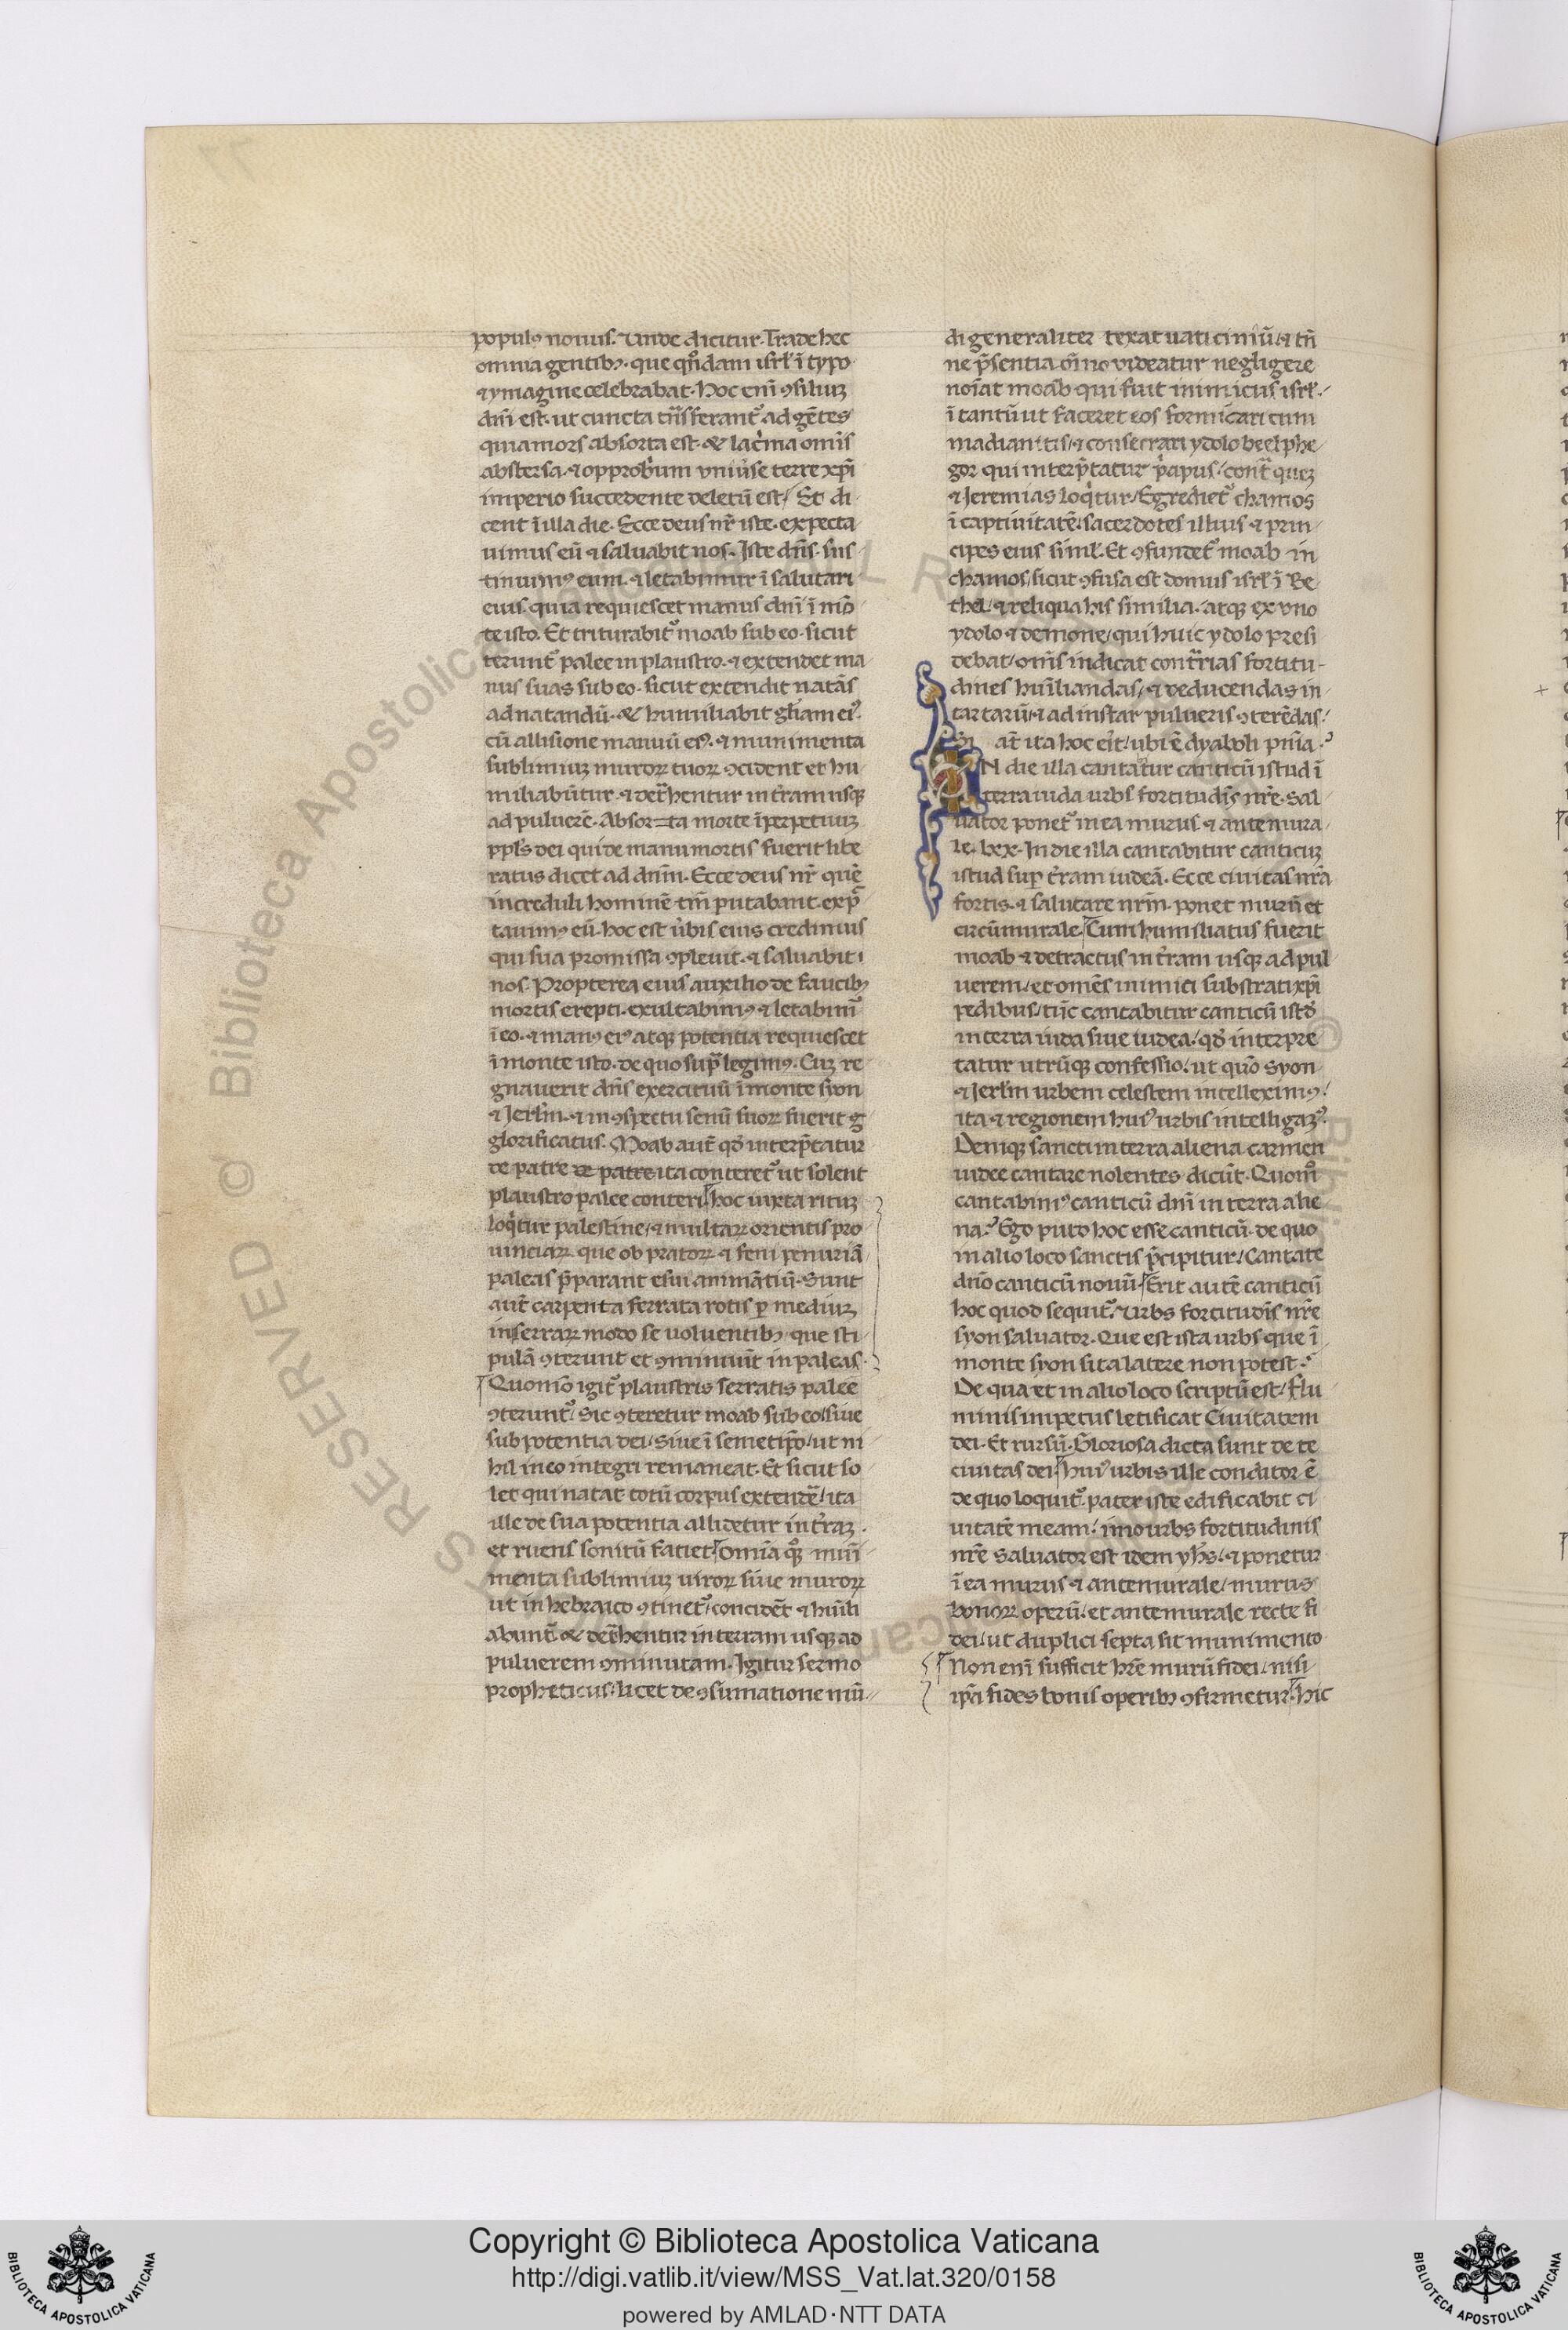 popul᷒ nouus. Vnde dicitur. Trade hec
omnia gentib᷒. que qn̄dam isrl̄ ī typo
⁊ ymagine celebrabat. Hoc enī ꝯsiliuꝫ
dn̄i est. ut cuncta tn̄sferant᷒ ad gētes
quia mors absorta est. & lac̍ma om̄is
abstersa. ⁊ opprob̍um vniu̍se terre xp̄i
imperio succedente deletū est. Et di
cent ī illa die. Ecce deus nr̄ iste. expecta
uimus eū ⁊ saluabit nos. Iste dn̄s. sus
tinuim᷒ eum. ⁊ letabimur ī salutari
eius. quia requiescet manus dn̄i ī mō
te isto. Et triturabit᷒ moab sub eo. sicut
terunt᷒ palee in plaustro. ⁊ extendet ma
nus suas sub eo. sicut extendit natās
ad natandū. & humiliabit gl̄iam ei᷒.
cū allisione manuū ei᷒. ⁊ munimenta
sublimiuꝫ muroꝝ tuoꝝ ꝯcident et hu
miliabūtur. ⁊ det̄hentur in t̄ram usqꝫ
ad puluerē. Absor=ta morte ī perpetuuꝫ
ppl̄s dei qui de manu mortis fuerit libe
ratus dicet ad dn̄m. Ecce deus nr̄ quē
increduli hominē tm̄ putabant. exp̄c
tauim᷒ eū. hoc est u̍bis eius credimus
qui sua promissa ꝯpleuit. ⁊ saluabit
nos. Propterea eius auxilio de faucib᷒
mortis erepti. exultabim᷒ ⁊ letabim᷒
ī eo. ⁊ man᷒ ei᷒ atqꝫ potentia requiescet
ī monte isto. de quo sup̄ legim᷒. Cuꝫ re
gnauerit dn̄s exercituū ī monte syon
⁊ Ierl̄m. ⁊ in ꝯspectu senū suoꝝ fuerit g
glorificatus. Moab aut̄ qd̄ interp̄tatur
de patre de patre ita conteret᷒ ut solent
plaustro palee conteri. hoc iuxta rituꝫ
loq̍tur palestine, ⁊ multaꝝ orientis pro
uinciaꝝ. que ob pratoꝝ ⁊ feni penuriā
paleas p̄parant esui animātiū. Sunt
aut̄ carpenta ferrata rotis ꝑ mediuꝫ
in serraꝝ modo se uoluentib᷒, que sti
pulā ꝯterunt et ꝯminuūt in paleas.
Quomō igit᷒ plaustris serratis palee
ꝯterunt᷒. sic ꝯteretur moab sub eo. siue
sub potentia dei. siue ī semetip̄o. ut ni
hil in eo integri remaneat. Et sicut so
let qui natat totū corpus extendē. ita
ille de sua potentia allidetur in t̄raꝫ.
et ruens sonitū faciet. Omīa qͦꝫ muni
menta sublimiuꝫ uiroꝝ siue muroꝝ
ut in hebraico ꝯtinet᷒. concidēt ⁊ hūili
abunt᷒. & det̄hentur in terram usqꝫ ad
puluerem ꝯminutam. Igitur sermo
propheticus. licet de ꝯsumatione mū
di generaliter texat uaticiniū. ⁊ tn̄
ne p̄sentia om̄ino videatur negligere
noīat moab qui fuit inimicus isrl̄.
ī tantū ut faceret eos fornicari cum
madianitis. ⁊ consecrari ydolo beelphe
gor qui interp̄tatur p̍apus. cont̄ queꝫ
⁊ Ieremias loq̍tur. Egrediet᷒ chamos
ī captiuitatē. sacerdotes illius ⁊ prin
cipes eius simil̄. Et ꝯfundet᷒ moab in
chamos. sicut ꝯfusa est domus isrl̄ ī Be
thel. ⁊ reliqua his similia. atqꝫ ex vno
ydolo ⁊ demone. qui huic ydolo presi
debat. om̄s indicat cont̄rias fortitu
dines hūiliandas. ⁊ deducendas in
tartarū. ⁊ ad instar pulueris ꝯterēdas.
Si at̄ ita hoc erit. ubi ē dyaboli pn̄ia.
IN die illa cantatur canticū istud ī
terra iuda urbs fortitudīs nr̄e. sal
uator ponet᷒ in ea murus ⁊ antemura
le. lxx. In die illa cantabitur canticuꝫ
istud suꝑ t̄ram iudeā. Ecce ciuitas nr̄a
fortis. ⁊ salutare nr̄m. ponet murū et
circūmurale. Cum humiliatus fuerit
moab ⁊ detractus in t̄ram usqꝫ ad pul
uerem. et omēs inimici substrati xp̄i
pedibus. tūc cantabitur canticū istd̄
in terra iuda siue iudea. qd̄ interpre
tatur utrūqꝫ confessio. ut quō syon
⁊ Ierl̄m urbem celestem intelleximꝰ.
ita ⁊ regionem hui᷒ urbis intelligam᷒.
Deniqꝫ sancti in terra aliena carmen
iudee cantare nolentes dicūt. Quom̊
cantabim᷒ canticū dn̄i in terra alie
na. Ego puto hoc esse canticū. de quo
in alio loco sanctis p̄cipitur. Cantate
dn̄o canticū nouū. Erit autē canticū
hoc quod sequit᷒. Urbs fortitudīs nr̄e
syon saluator. Que est ista urbs que ī
monte syon sita latere non potest.
De qua et in alio loco scriptū est. Flu
minis impetus letificat Ciuitatem
dei. Et rursū. Gloriosa dicta sunt de te
ciuitas dei. Hui᷒ urbis ille conditor ē
de quo loquit᷒ pater iste edificabit ci
uitatē meam. imo urbs fortitudinis
nr̄e saluator est idem yh̄s. ⁊ ponetur
ī ea murus ⁊ antemurale. murus
bonoꝝ operū. et antemurale recte fi
dei. ut duplici septa sit munimento
Non enī sufficit hr̄e murū fidei. nisi
ip̄a fides bonis operib᷒ ꝯfirmetur. hic
Copyright © Biblioteca Apostolica Vaticana
http://digi.vatlib.it/view/MSS_Vat.lat.320/0158
powered by AMLAD·NTT DATA